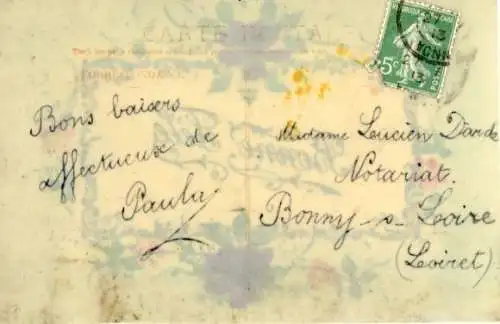 CARTE POSTALE
CORRESPONDANCE
Bons baisers
affectueux de
Paula
Madame Lucien Darde
Notariat.
Bonny-s-Loire
(Loiret)
5c
Bonne Fête